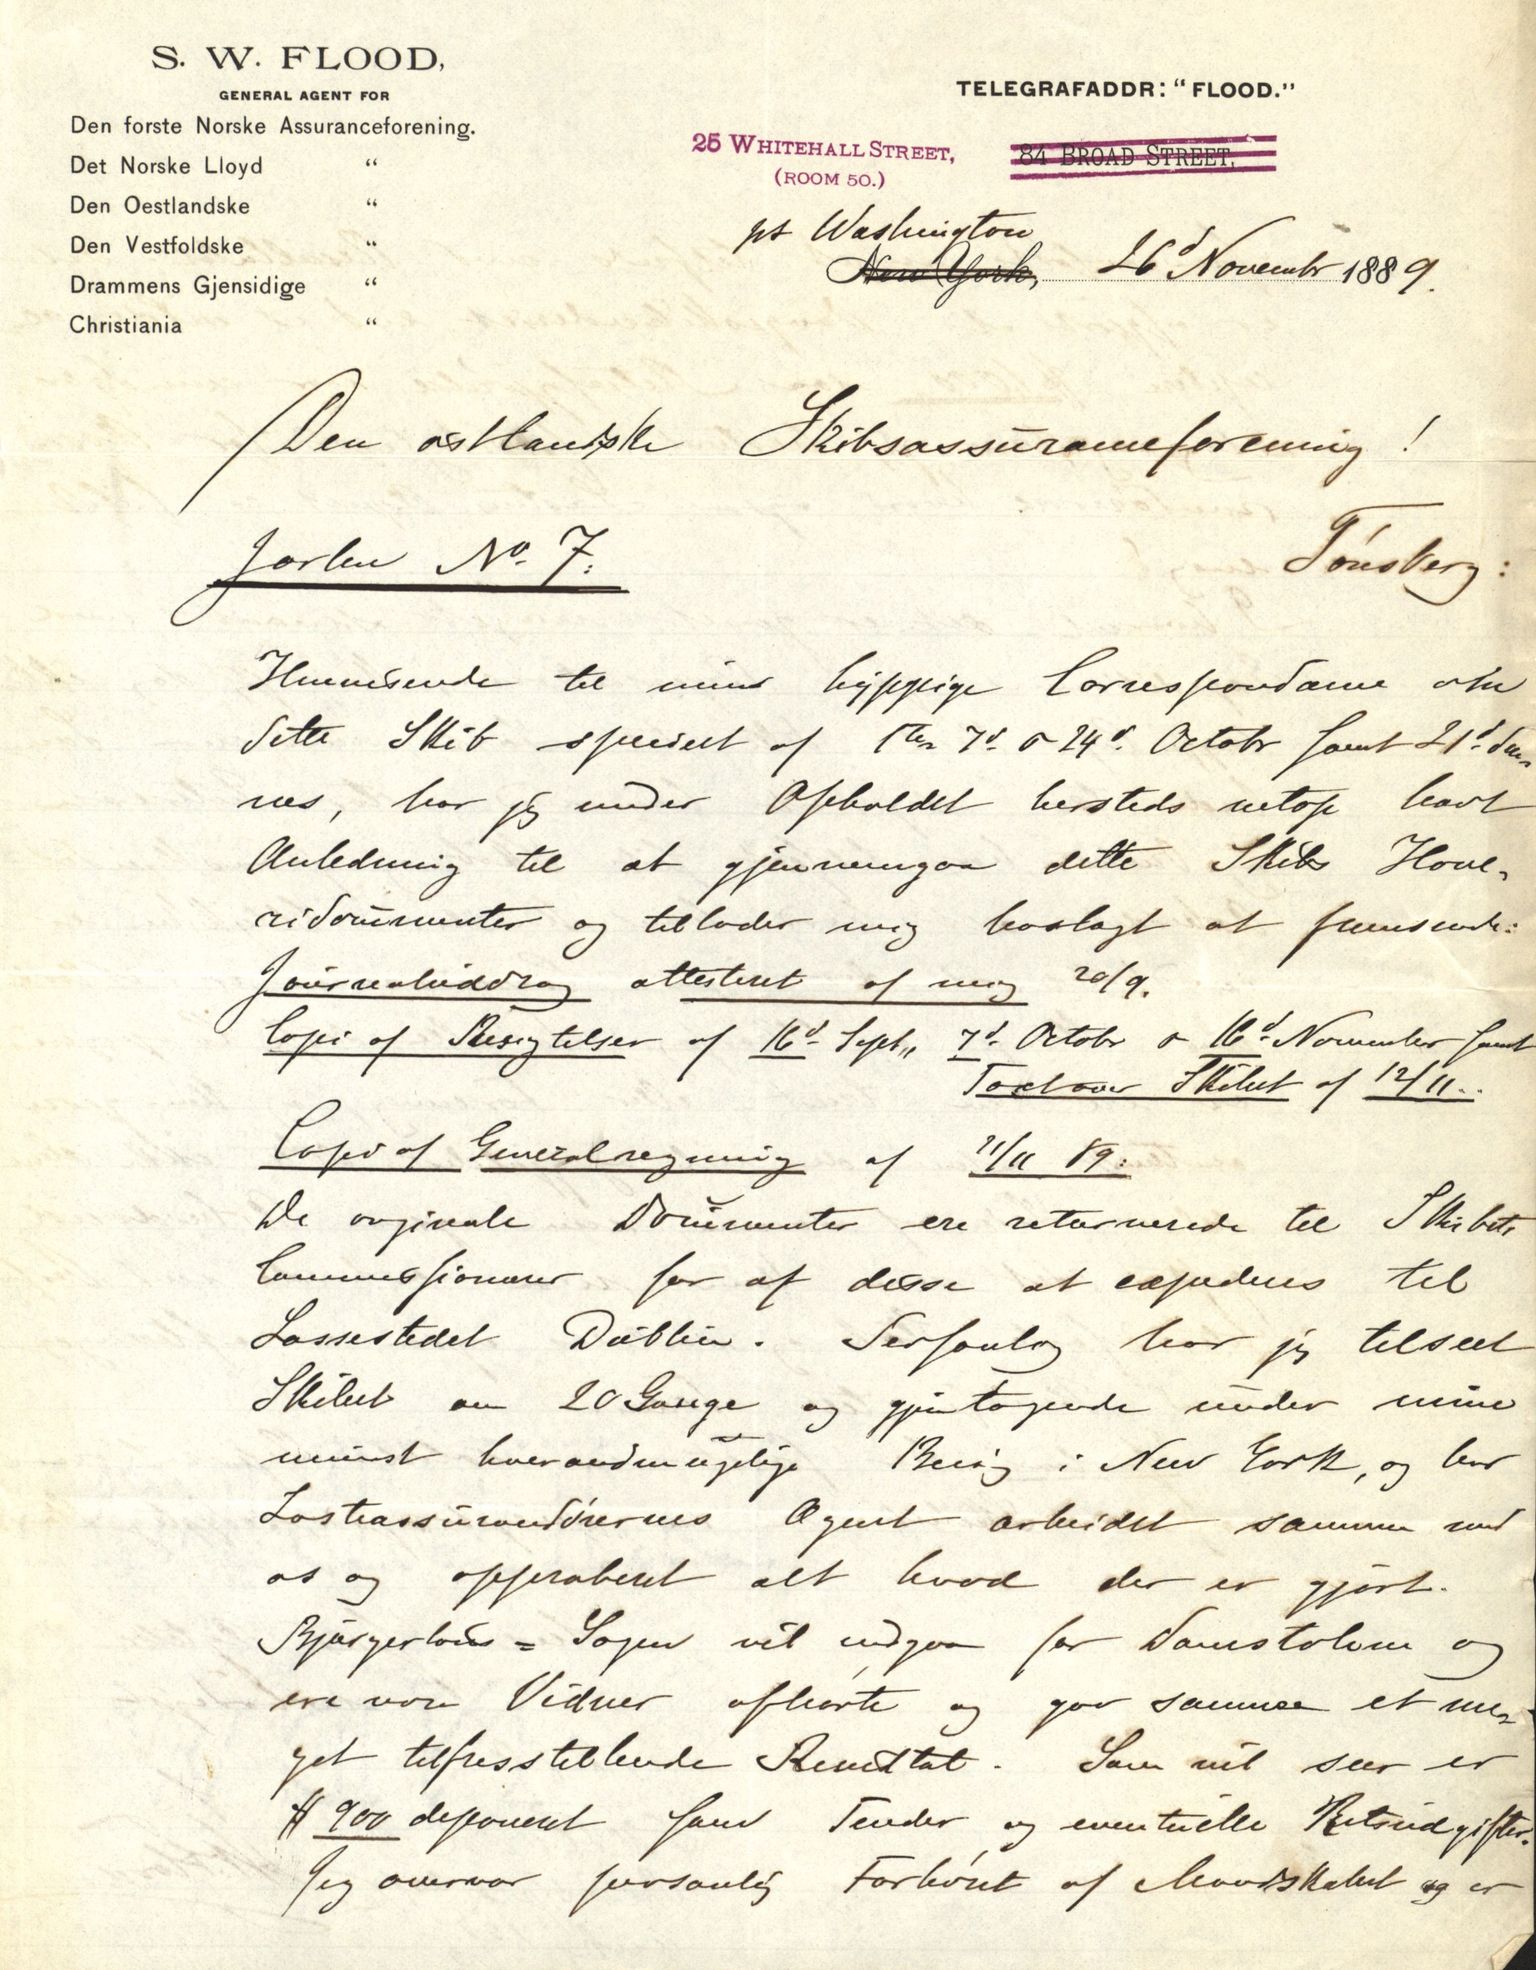 S. W. FLOOD,
GENERAL AGENT FOR
Den forste Norske Assuranceforening.
Det Norske Lloyd “
Den Oestlandske “
Den Vestfoldske “
Drammens Gjensidige “
Christiania “
TELEGRAFADDR: “FLOOD.”
25 WHITEHALL STREET,
(ROOM 50.)
84 BROAD STREET,
pt Washington
New York, 26d Novembr 1889.
Den østlandske Skibsassuranceforening!
Jarlen No. 7:
Tønsberg:
Henvisende til min hyppige Correspondance om
dette Skib specielt af 7d. o 24d. Octobr samt 21d. den-
nes, har jeg under Opholdet hersteds netop havt
Anledning til at gjennemgaa dette Skibs Hava-
ridocumenter og tillader mig hoslagt at fremsende:
Journaluddrag attesteret af mig 20/9.
Copi af Besigtelser af 16d. Sept., 7d. Octobr o 16d. November samt
Taxt over Skibet af 12/11..
Copi af Generalregning af 21/11 89:
De orginale Documenter ere returnerede til Skibets
Commissionærer for af disse at expederes til
Lossestedet Dublin. Personlig har jeg tilseet
Skibet en 20 Gange og gjentagende under mine
minst hverandenugelige Besøg i New York, og har
Lastassurandørernes Agent arbeidet sammen med
os og approberet alt hvad der er gjort.
Bjærgerløns = Sagen vil indgaa for Domstolene og
ere vore Vidner afhørte og gav samme et me-
get tilfresstillende Resultat. Som vil sees er
$ 900 deponeret som Tender og eventuelle Retsudgifter.
Jeg overvar personlig Forhøret af Mandskabet og er